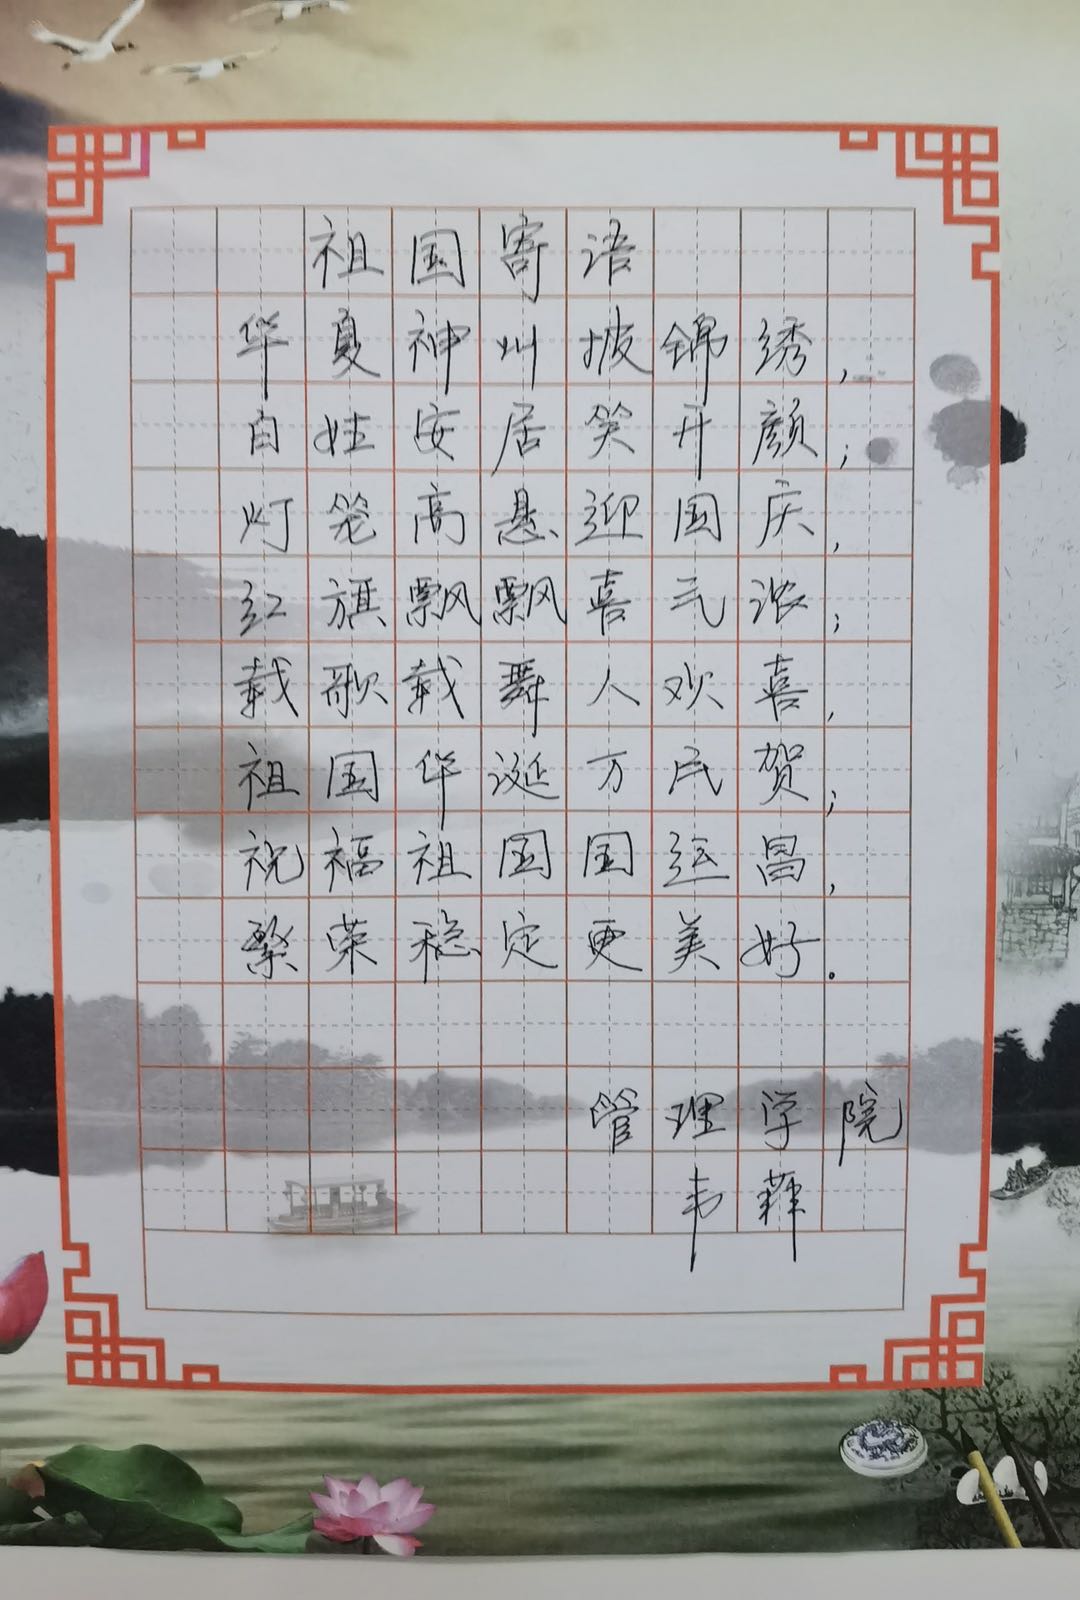 祖国寄语
华夏神州披锦绣，
百姓安居笑开颜；
灯笼高悬迎国庆，
红旗飘飘喜气浓；
载歌载舞人欢喜，
祖国华诞万民贺；
祝福祖国国运昌，
繁荣稳定更美好。
管理学院
韦菲